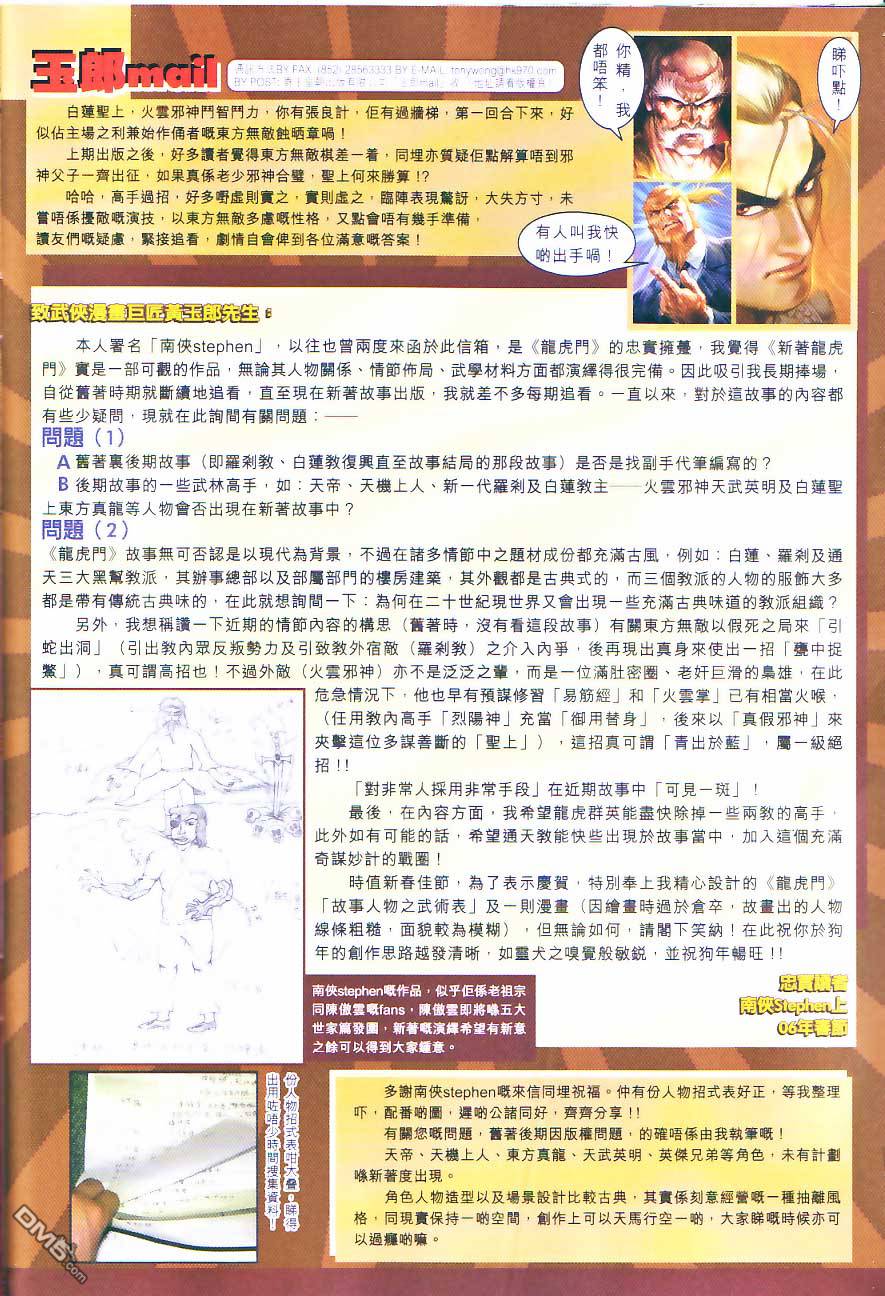 玉郎mail
BY FAX (852) 28563333 BY E-MAIL: tonywong@hk970.com
BY POST:
你精，我都唔笨！
睇吓點！
有人叫我快啲出手喎！
白蓮聖上，火雲邪神鬥智鬥力，你有張良計，佢有過牆梯，第一回合下來，好
似佔主場之利兼始作俑者嘅東方無敵蝕晒章喎！
上期出版之後，好多讀者覺得東方無敵棋差一着，同埋亦質疑佢點解算唔到邪
神父子一齊出征，如果真係老少邪神合璧，聖上何來勝算！？
哈哈，高手過招，好多嘢虛則實之，實則虛之，臨陣表現驚訝，大失方寸，未
嘗唔係擾敵嘅演技，以東方無敵多慮嘅性格，又點會唔有幾手準備，
讀友們嘅疑慮，緊接追看，劇情自會俾到各位滿意嘅答案！
致武俠漫畫巨匠黃玉郎先生：
本人署名「南俠stephen」，以往也曾兩度來函於此信箱，是《龍虎門》的忠實擁躉，我覺得《新著龍虎
門》實是一部可觀的作品，無論其人物關係、情節佈局、武學材料方面都演繹得很完備。因此吸引我長期捧場，
自從舊著時期就斷續地追看，直至現在新著故事出版，我就差不多每期追看。一直以來，對於這故事的內容都
有些少疑問，現就在此詢問有關問題：——
問題（1）
A 舊著裏後期故事（即羅剎教、白蓮教復興直至故事結局的那段故事）是否是找副手代筆編寫的？
B 後期故事的一些武林高手，如：天帝、天機上人、新一代羅剎及白蓮教主——火雲邪神天武英明及白蓮聖
上東方真龍等人物會否出現在新著故事中？
問題（2）
《龍虎門》故事無可否認是以現代為背景，不過在諸多情節中之題材成份都充滿古風，例如：白蓮、羅剎及通
天三大黑幫教派，其辦事總部以及部屬部門的樓房建築，其外觀都是古典式的，而三個教派的人物的服飾大多
都是帶有傳統古典味的，在此就想詢問一下：為何在二十世紀現世界又會出現一些充滿古典味道的教派組織？
另外，我想稱讚一下近期的情節內容的構思（舊著時，沒有看這段故事）有關東方無敵以假死之局來「引
蛇出洞」（引出教內眾反叛勢力及引致教外宿敵（羅剎教）之介入內爭，後再現出真身來使出一招「甕中捉
鱉」），真可謂高招也！不過外敵（火雲邪神）亦不是泛泛之輩，而是一位滿肚密圈、老奸巨滑的梟雄，在此
危急情況下，他也早有預謀修習「易筋經」和「火雲掌」已有相當火喉，
（任用教內高手「烈陽神」充當「御用替身」，後來以「真假邪神」來
夾擊這位多謀善斷的「聖上」），這招真可謂「青出於藍」，屬一級絕
招！！
「對非常人採用非常手段」在近期故事中「可見一斑」！
最後，在內容方面，我希望龍虎群英能盡快除掉一些兩教的高手，
此外如有可能的話，希望通天教能快些出現於故事當中，加入這個充滿
奇謀妙計的戰圈！
時值新春佳節，為了表示慶賀，特別奉上我精心設計的《龍虎門》
「故事人物之武術表」及一則漫畫（因繪畫時過於倉卒，故畫出的人物
線條粗糙，面貌較為模糊），但無論如何，請閣下笑納！在此祝你於狗
年的創作思路越發清晰，如靈犬之嗅覺般敏銳，並祝狗年暢旺！！
忠實讀者
南俠Stephen上
06年春節
南俠stephen嘅作品，似乎佢係老祖宗
同陳傲雲嘅fans，陳傲雲即將喺五大
世家篇發圍，新著嘅演繹希望有新意
之餘可以得到大家鍾意。
份人物招式表咁大叠，睇得
出用咗唔少時間搜集資料！
多謝南俠stephen嘅來信同埋祝福。仲有份人物招式表好正，等我整理
吓，配番啲圖，遲啲公諸同好，齊齊分享！！
有關您嘅問題，舊著後期因版權問題，的確唔係由我執筆嘅！
天帝、天機上人、東方真龍、天武英明、英傑兄弟等角色，未有計劃
喺新著度出現。
角色人物造型以及場景設計比較古典，其實係刻意經營嘅一種抽離風
格，同現實保持一啲空間，創作上可以天馬行空一啲，大家睇嘅時候亦可
以過癮啲嘛。
DM5.com